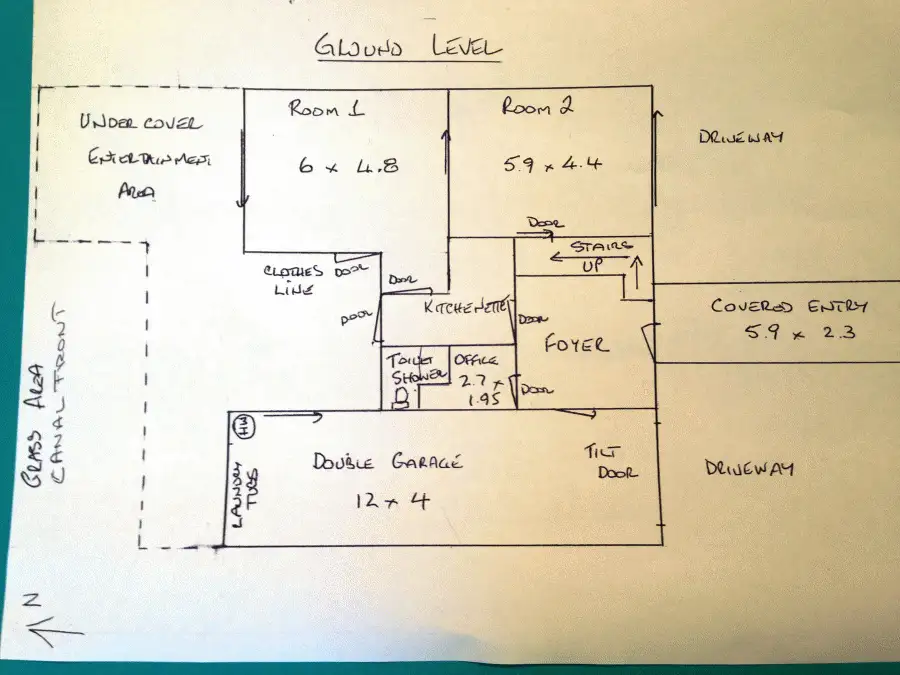 GROUND LEVEL
UNDER COVER
ENTERTAINMENT
AREA
ROOM 1
6 x 4.8
ROOM 2
5.9 x 4.4
DRIVEWAY
DOOR
STAIRS
UP
CLOTHES
LINE
DOOR
DOOR
DOOR
KITCHENETTE
DOOR
FOYER
COVERED ENTRY
5.9 x 2.3
TOILET
SHOWER
OFFICE
2.7 x
1.95
DOOR
GRASS AREA
CANAL FRONT
LAUNDRY
TUBS
DOUBLE GARAGE
12 x 4
TILT
DOOR
DRIVEWAY
N